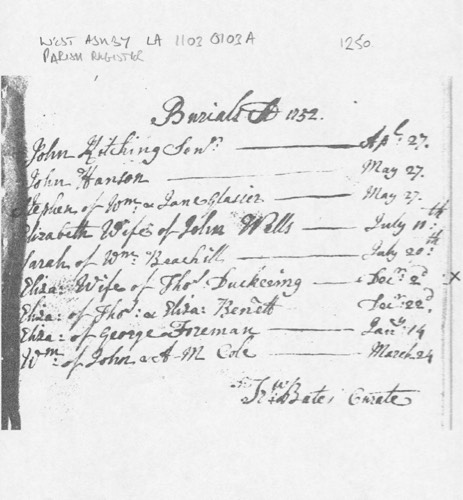 WEST ASHBY LA 1103 0103A
PARISH REGISTER
1250
Burials A 1752.
John Kitching Senr. Apl. 27.
John Hanson May 27.
Stephen of Wm. & Jane Glasier May 27.
Elizabeth Wife of John Wells July 11th
Sarah of Wm. July 20th
Eliza: Wife of Tho: Duckering Decr. 2d x
Eliza: of Tho: & Eliza: Benett Decr. 22d.
Eliza: of George Foreman Jany. 14
Wm. of John & A M Cole March 24
Bates Curate